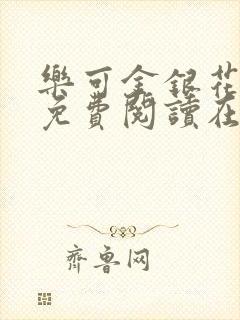 樂可金銀花
免費閱讀在
齊魯网